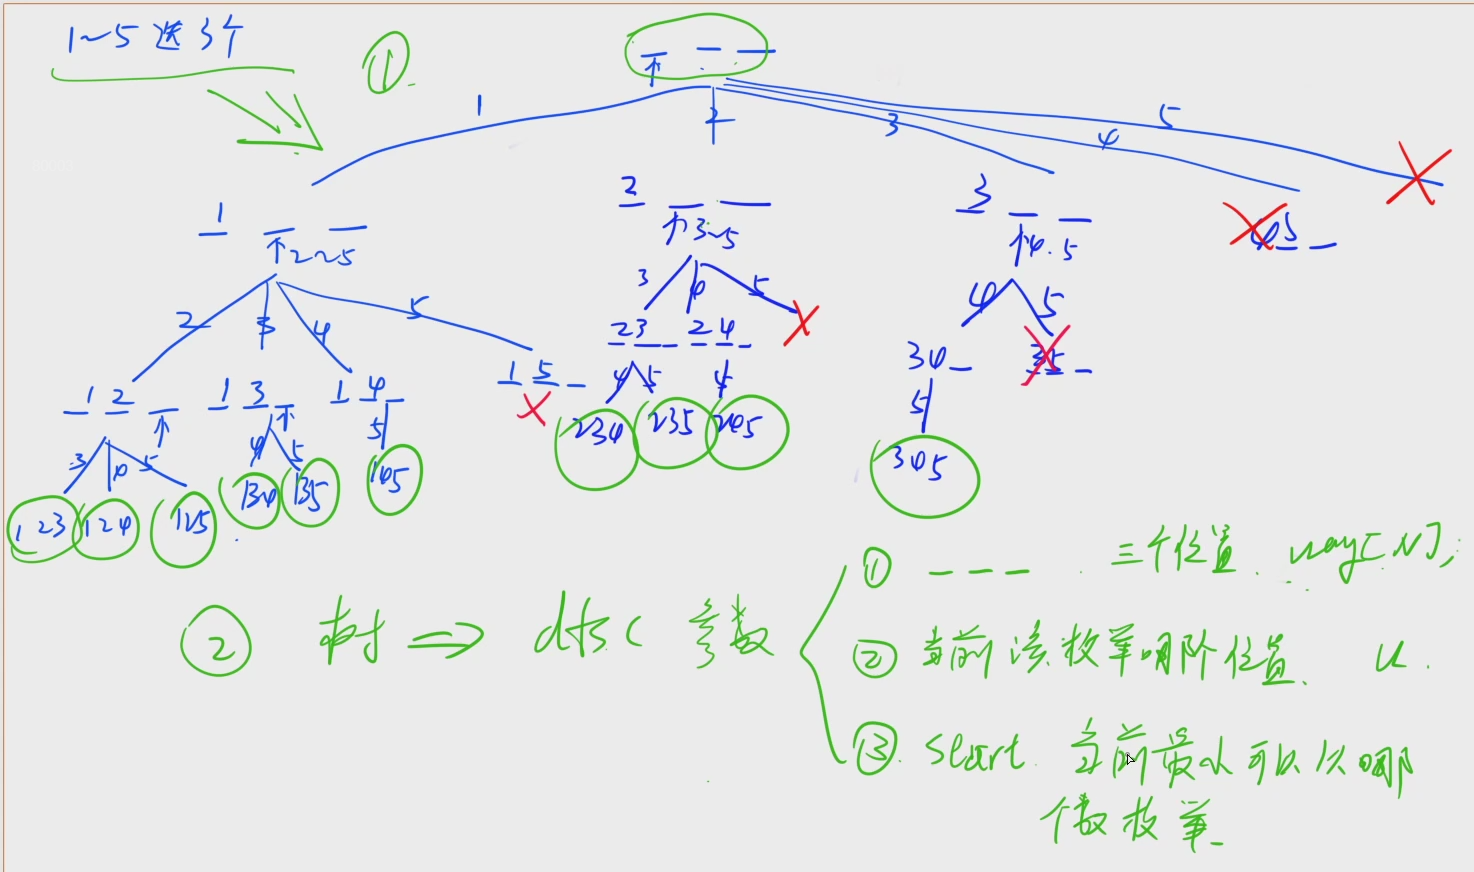 1~5 选 3个
①
1
2
3
4
5
1
2
3
2~5
3~5
4.5
45
2
3
4
5
3
4
5
4
5
1 2
1 3
1 4
1 5
23
24
34
35
3
4
5
4
5
5
4
5
5
5
123
124
125
134
135
145
234
235
245
345
② 树 ⇒ dfs( 参数
① 三个位置. way[N];
② 当前该枚举哪个位置. u.
③ start. 当前最小可以从哪
个数枚举